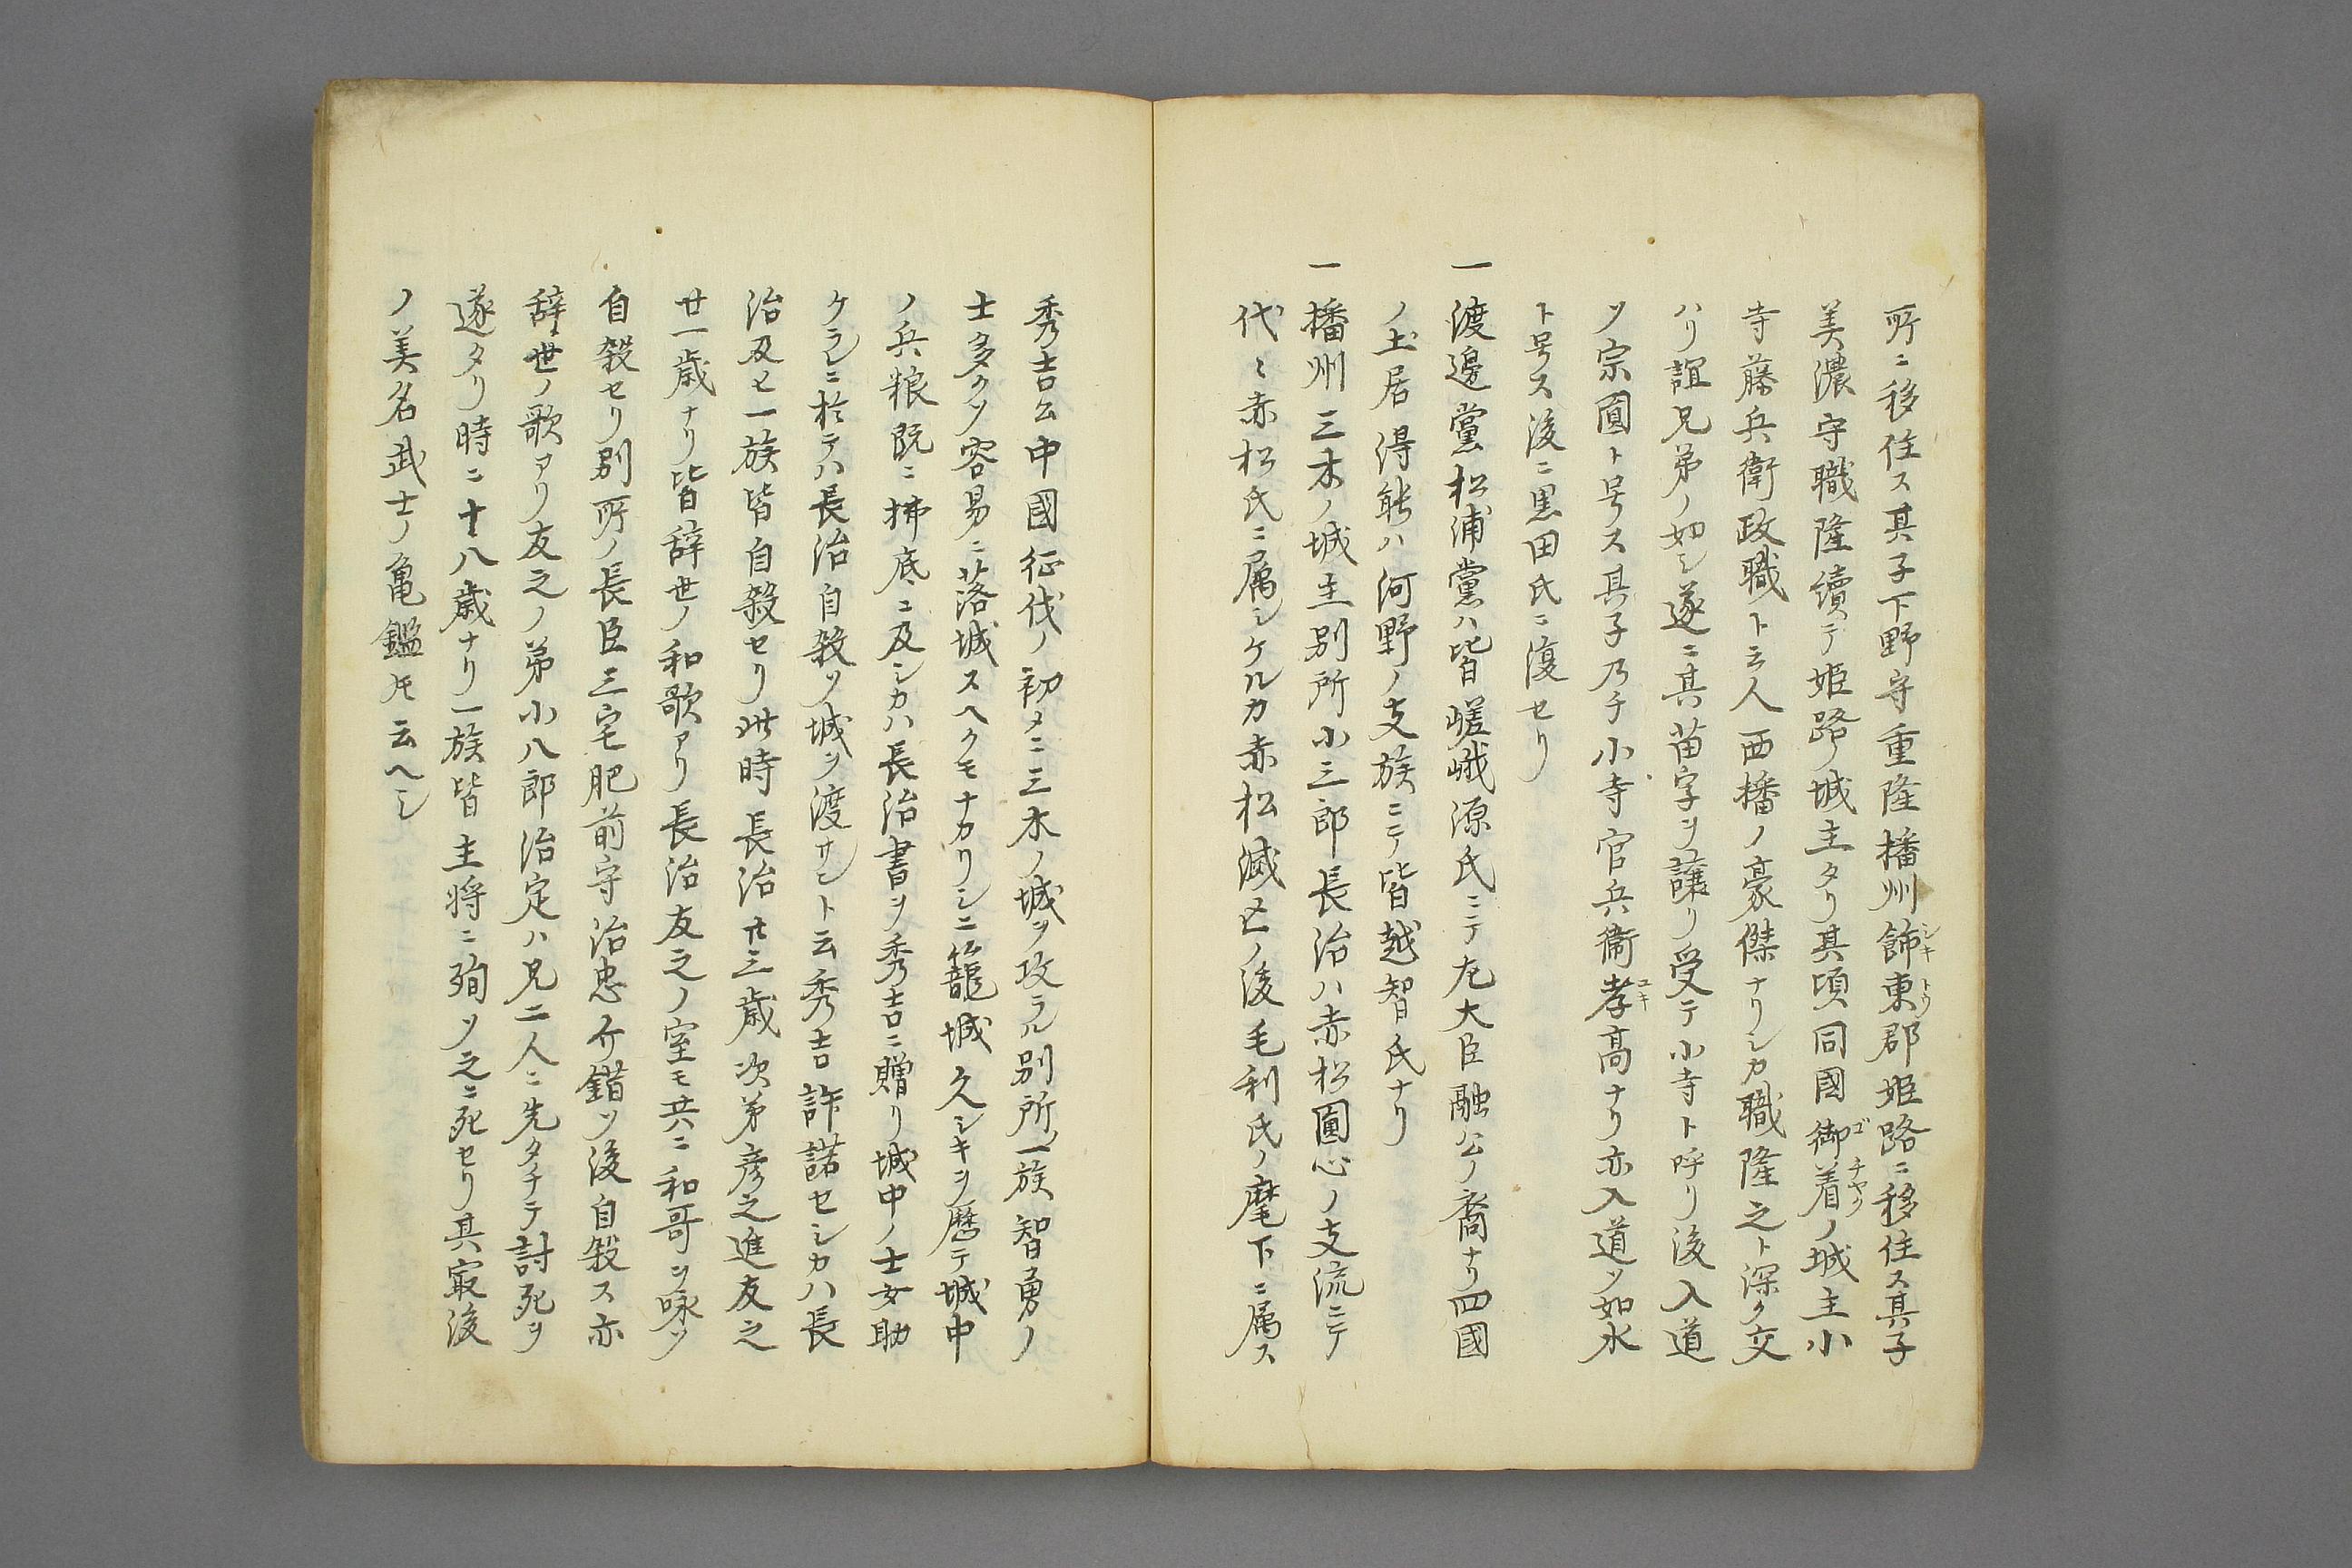 所ニ移住ス其子下野守重隆播州飾東郡姫路ニ移住ス其子
シキトウ
美濃守職隆續テ姫路ノ城主タリ其頃同國御着ノ城主小
ゴチヤク
寺藤兵衛政職ト云人西播ノ豪傑ナリシカ職隆之ト深ク交
ハリ誼兄弟ノ如シ遂ニ其苗字ヲ譲リ受テ小寺ト呼リ後入道
ソ宗圓ト号ス其子乃チ小寺官兵衛孝高ナリ亦入道ソ如水
ユキ
ト号ス後ニ黒田氏ニ復セリ
一渡邊黨松浦黨ハ皆嵯峨源氏ニテ左大臣融公ノ裔ナリ四國
ノ土居得能ハ河野ノ支族ニテ皆越智氏ナリ
一播州三木ノ城主別所小三郎長治ハ赤松圓心ノ支流ニテ
代々赤松氏ニ属シケルカ赤松滅亡ノ後毛利氏ノ麾下ニ属ス
秀吉公中國征伐ノ初メニ三木ノ城ヲ攻ラル別所ノ一族智勇ノ
士多クソ容易ニ落城スヘクモナカリシニ籠城久シキヲ歴テ城中
ノ兵粮既ニ拂底ニ及シカハ長治書ヲ秀吉ニ贈リ城中ノ士女助
ケラレニ於テハ長治自殺ソ城ヲ渡サント云秀吉許諾セシカハ長
治及ヒ一族皆自殺セリ此時長治廿三歳次弟彦之進友之
廿一歳ナリ皆辞世ノ和歌アリ長治友之ノ室モ共ニ和哥ヲ咏ソ
自殺セリ別所ノ長臣三宅肥前守治忠介錯ソ後自殺ス亦
辞世ノ歌アリ友之ノ弟小八郎治定ハ兄二人ニ先タチテ討死ヲ
遂タリ時ニ十八歳ナリ一族皆主将ニ殉ソ之ニ死セリ其冣後
ノ美名武士ノ亀鑑𪜈云ヘシ